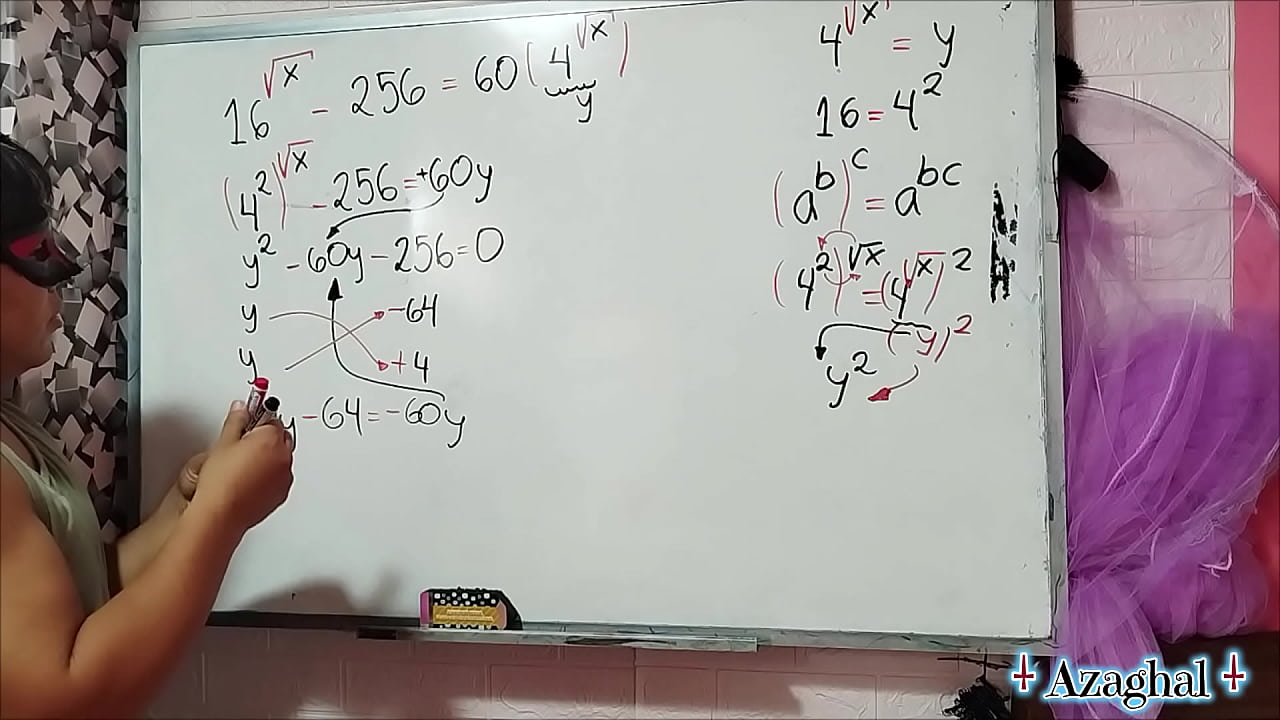 16^√x - 256 = 60(4^√x)
y
(4²)^√x - 256 = +60y
y² - 60y - 256 = 0
y -64
y +4
y - 64 = -60y
4^√x = y
16 = 4²
(a^b)^c = a^bc
(4²)^√x = (4^√x)²
(y)²
y²
Azaghal